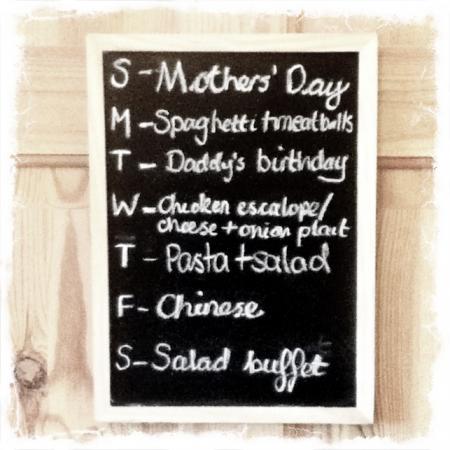 S - Mothers' Day
M - Spaghetti + meatballs
T - Daddy's birthday
W - Chicken escalope/
cheese + onion plait
T - Pasta + salad
F - Chinese
S - Salad buffet